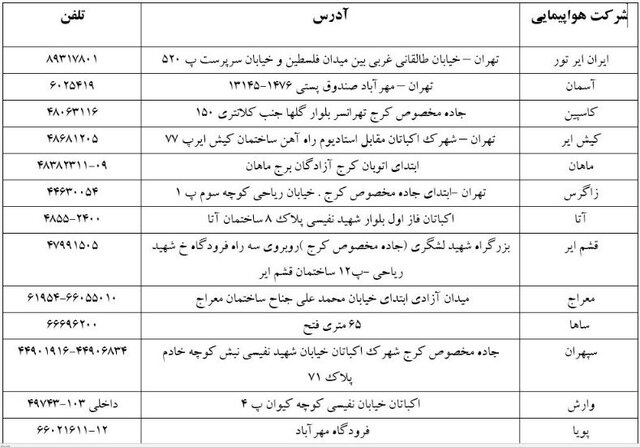 شرکت هواپیمایی آدرس تلفن
ایران ایر تور تهران – خیابان طالقانی غربی بین میدان فلسطین و خیابان سرپرست پ ۵۲۰ ۸۹۳۱۷۸۰۱
آسمان تهران – مهر آباد صندوق پستی ۱۴۷۶-۱۳۱۴۵ ۶۰۲۵۴۱۹
کاسپین جاده مخصوص کرج تهرانسر بلوار گلها جنب کلانتری ۱۵۰ ۴۸۰۶۳۱۱۶
کیش ایر تهران – شهرک اکباتان مقابل استادیوم راه آهن ساختمان کیش ایرپ ۷۷ ۴۸۶۸۱۲۰۵
ماهان ابتدای اتوبان کرج آزادگان برج ماهان ۴۸۳۸۲۳۱۱-۰۹
زاگرس تهران –ابتدای جاده مخصوص کرج . خیابان ریاحی کوچه سوم پ ۱ ۴۴۶۳۰۰۵۴
آتا اکباتان فاز اول بلوار شهید نفیسی پلاک ۸ ساختمان آتا ۴۸۵۵-۲۴۰۰
قشم ایر بزرگراه شهید لشگری (جاده مخصوص کرج )روبروی سه راه فرودگاه خ شهید ۴۷۹۹۱۵۰۵
ریاحی –پ۱۲ ساختمان قشم ایر
معراج میدان آزادی ابتدای خیابان محمد علی جناح ساختمان معراج ۶۱۹۵۴-۶۶۰۵۵۰۱۰
ساها ۶۵ متری فتح ۶۶۶۹۶۲۰۰
سپهران جاده مخصوص کرج شهرک اکباتان خیابان شهید نفیسی نبش کوچه خادم ۴۴۹۰۱۹۱۶-۴۴۹۰۶۸۳۴
پلاک ۷۱
وارش اکباتان خیابان نفیسی کوچه کیوان پ ۴ داخلی ۱۰۳-۴۹۷۴۳
پویا فرودگاه مهر آباد ۶۶۰۲۱۶۱۱-۱۲